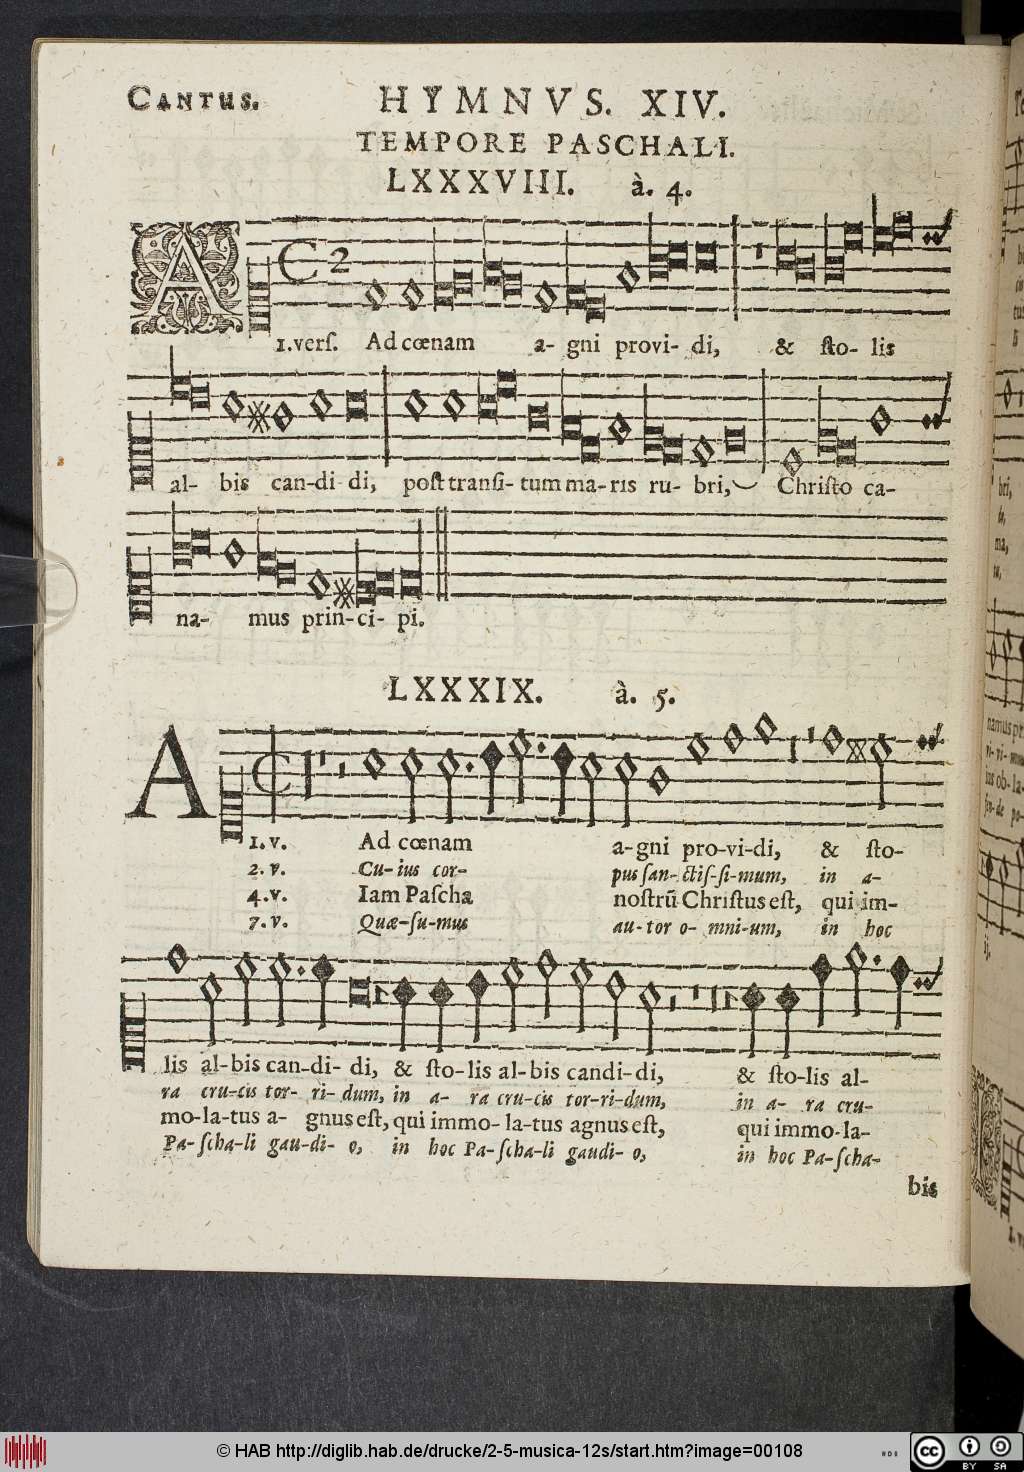 CANTUS.
HYMNVS. XIV.
TEMPORE PASCHALI.
LXXXVIII. à. 4.
A
C2
1.verſ. Ad cœnam a- gni provi- di, & ſto- lis
al- bis can-di- di, poſt tranſi- tum ma- ris ru- bri, Chriſto ca-
na- mus prin-ci- pi.
LXXXIX. à. 5.
A
1.v. Ad cœnam a-gni pro-vi-di, & ſto-
2.v. Cu-ius cor- pus ſan-ctiſ-ſi-mum, in a-
4.v. Iam Paſcha noſtrũ Chriſtus eſt, qui im-
7.v. Quæ-ſu-mus au-tor o- mni-um, in hoc
lis al-bis can-di- di, & ſto-lis al-bis candi-di, & ſto-lis al-
ra cru-cis tor- ri- dum, in a- ra cru-cis tor-ri-dum, in a- ra cru-
mo-la-tus a- gnus eſt, qui immo-la-tus agnus eſt, qui immo-la-
Pa-ſcha-li gau-di- o, in hoc Pa-ſcha-li gaudi- o, in hoc Pa-ſcha-
bis
© HAB http://diglib.hab.de/drucke/2-5-musica-12s/start.htm?image=00108
cc
BY SA